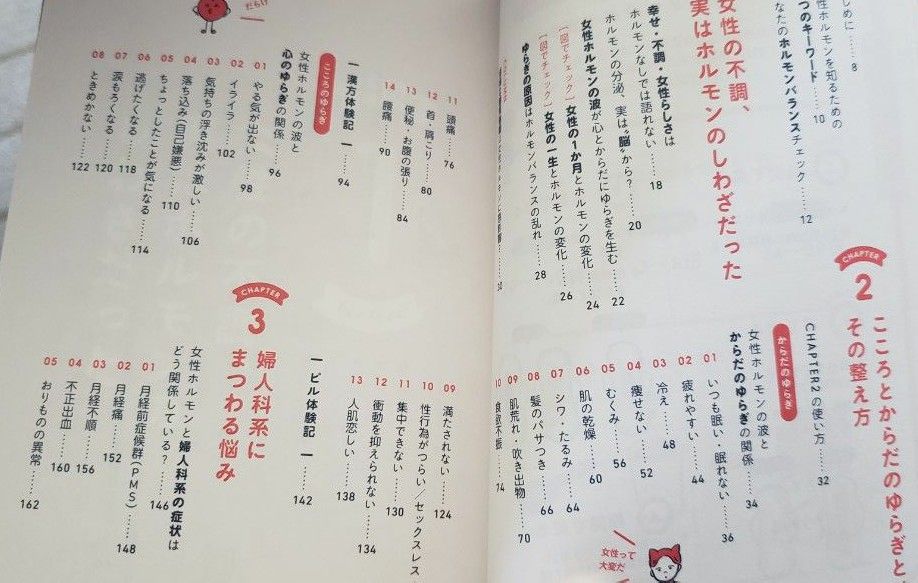 じめに……8
性ホルモンを知るための
つのキーワード……10
なたのホルモンバランスチェック……12
女性の不調、
実はホルモンのしわざだった
幸せ・不調・女性らしさは
ホルモンなしでは語れない……18
ホルモンの分泌、実は“脳”から？……20
女性ホルモンの波が心とからだにゆらぎを生む……22
［図でチェック］女性の1か月とホルモンの変化……24
［図でチェック］女性の一生とホルモンの変化……26
ゆらぎの原因はホルモンバランスの乱れ……28
30
CHAPTER
2
こころとからだのゆらぎと
その整え方
CHAPTER2の使い方……32
からだのゆらぎ
女性ホルモンの波と
からだのゆらぎの関係……34
01 いつも眠い・眠れない……36
02 疲れやすい……44
03 冷え……48
04 痩せない……52
05 むくみ……56
06 肌の乾燥……60
07 シワ・たるみ……64
08 髪のパサつき……66
09 肌荒れ・吹き出物……70
10 食欲不振……74
女性って
大変だ
だらけ
11 頭痛……76
12 首・肩こり……80
13 便秘・お腹の張り……84
14 腰痛……90
ー 漢方体験記 ー……94
こころのゆらぎ
女性ホルモンの波と
心のゆらぎの関係……96
01 やる気が出ない……98
02 イライラ……102
03 気持ちの浮き沈みが激しい……106
04 落ち込み（自己嫌悪）……110
05 ちょっとしたことが気になる……114
06 逃げたくなる……118
07 涙もろくなる……120
08 ときめかない……122
09 満たされない……124
10 性行為がつらい／セックスレス
11 集中できない……130
12 衝動を抑えられない……134
13 人肌恋しい……138
ー ピル体験記 ー……142
CHAPTER
3
婦人科系に
まつわる悩み
女性ホルモンと婦人科系の症状は
どう関係している？……146
01 月経前症候群（PMS）……148
02 月経痛……152
03 月経不順……156
04 不正出血……160
05 おりものの異常……162